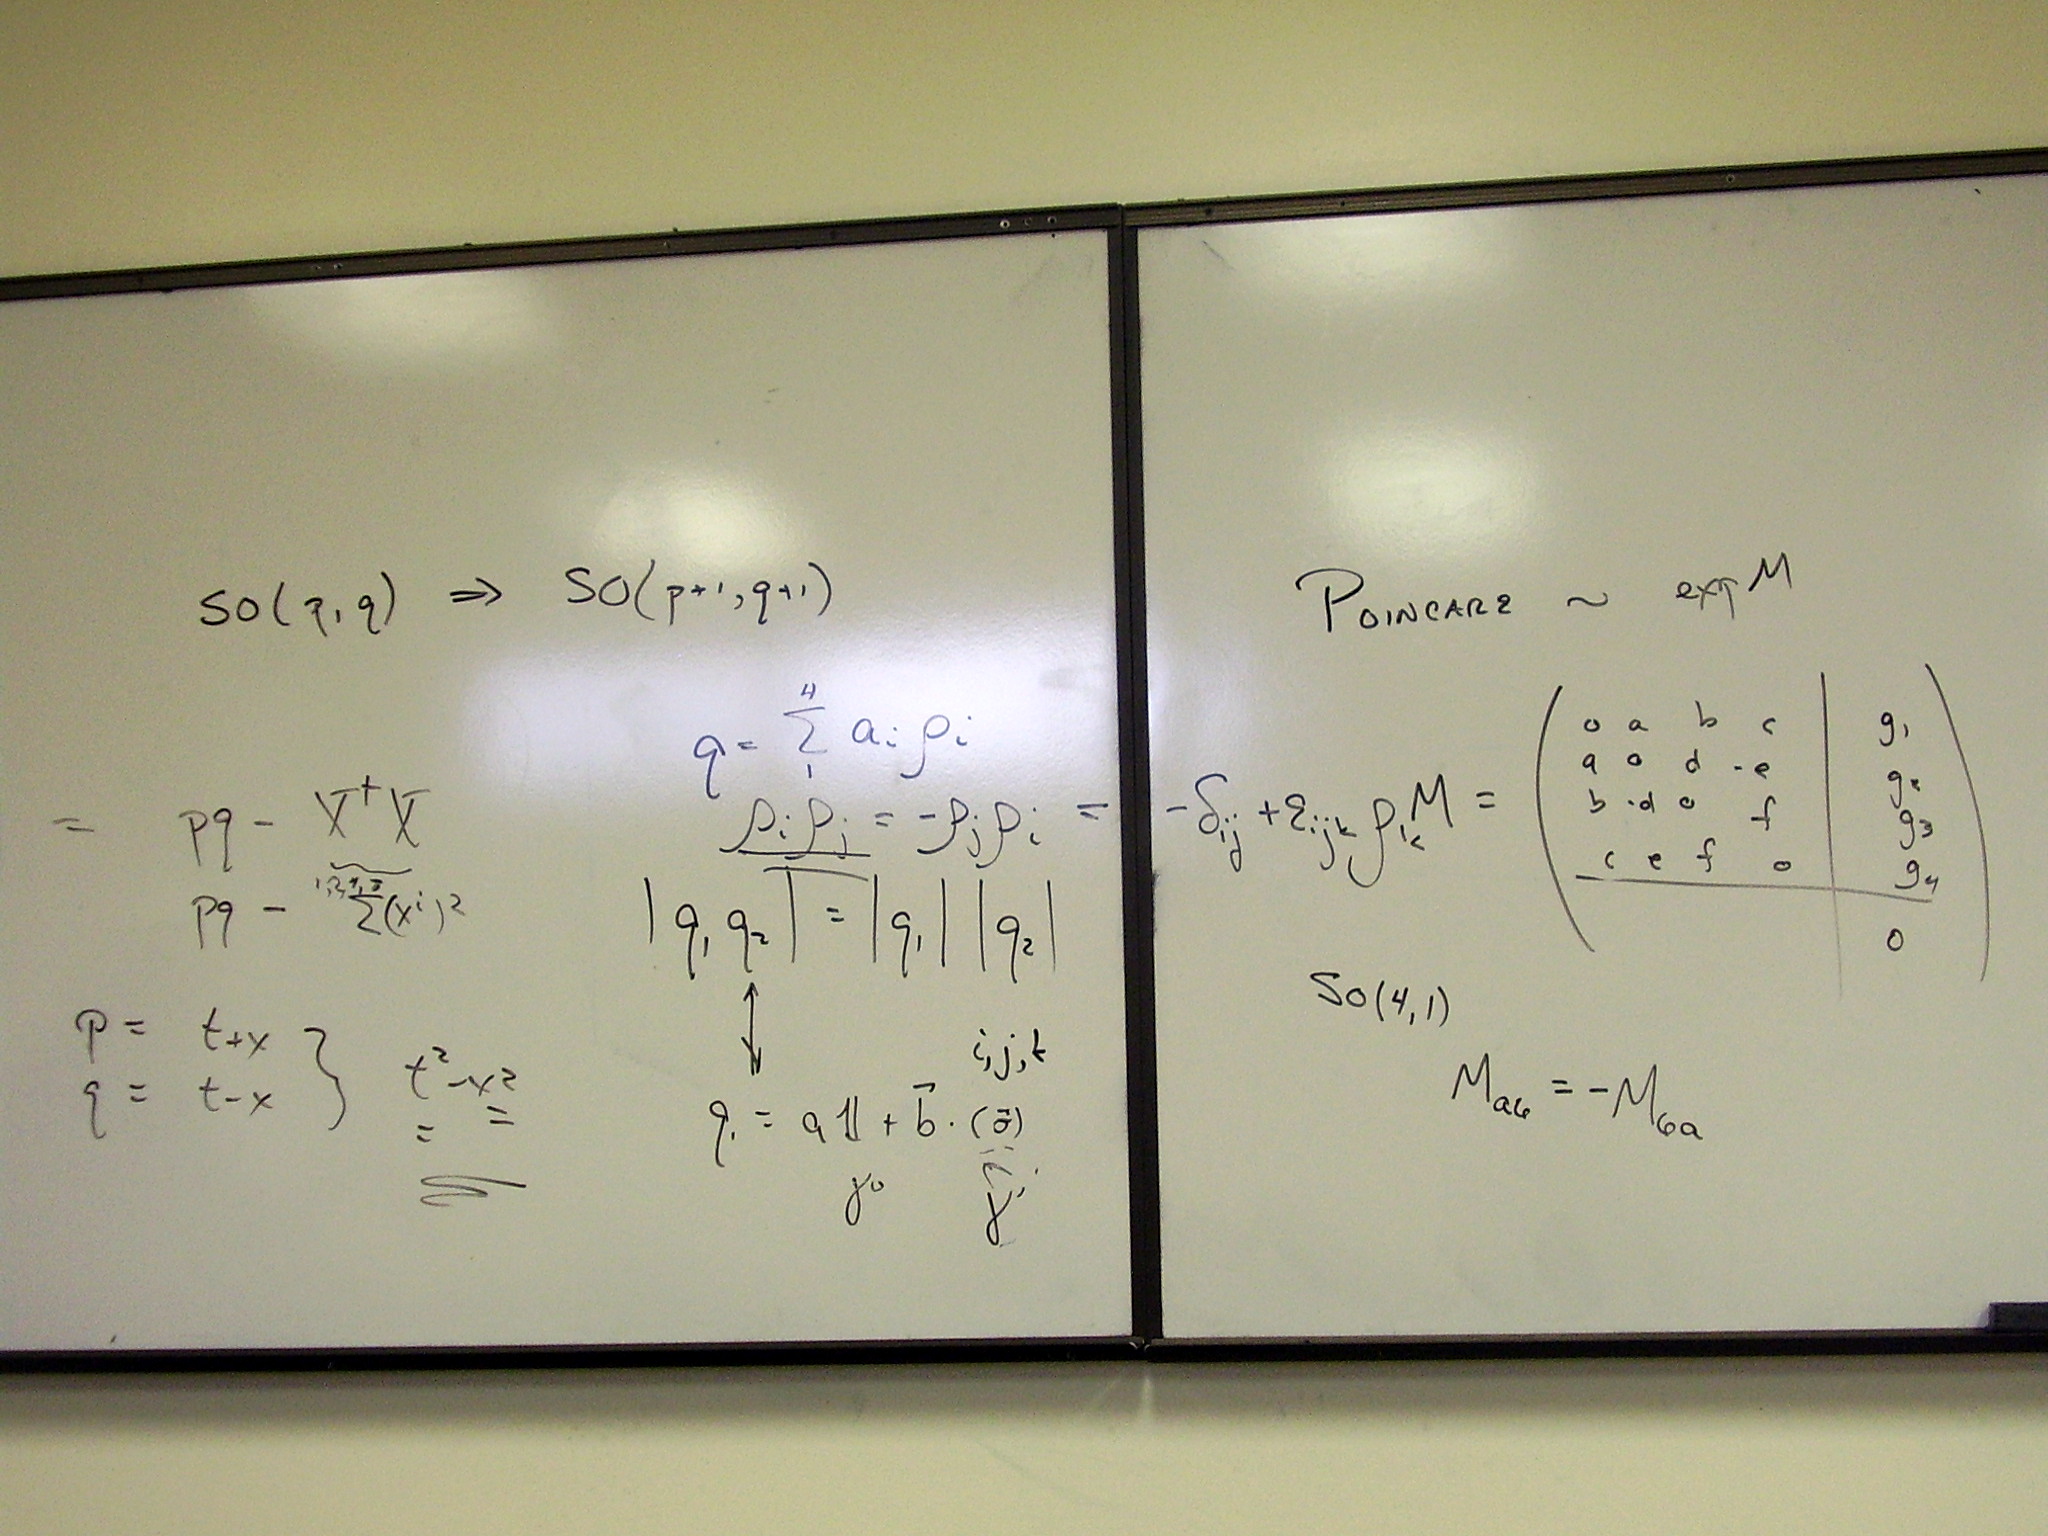 SO(p,q) ⇒ SO(p+1,q+1)
= pq - X†X
pq - Σ(xⁱ)²
p = t+x
q = t-x
} t²-x²
= =
4
q = Σ aᵢ ρᵢ
1
ρᵢρⱼ = -ρⱼρᵢ = -δᵢⱼ + εᵢⱼₖ ρₖ
|q₁ q₂| = |q₁| |q₂|
↕
i,j,k
q₁ = a𝟙 + b⃗·(σ⃗)
γ⁰ γⁱ
POINCARE ~ exp M
M =
0 a b c | g₁
a 0 d -e | g₂
b -d 0 f | g₃
c e f 0 | g₄
0
SO(4,1)
Mₐ₆ = -M₆ₐ